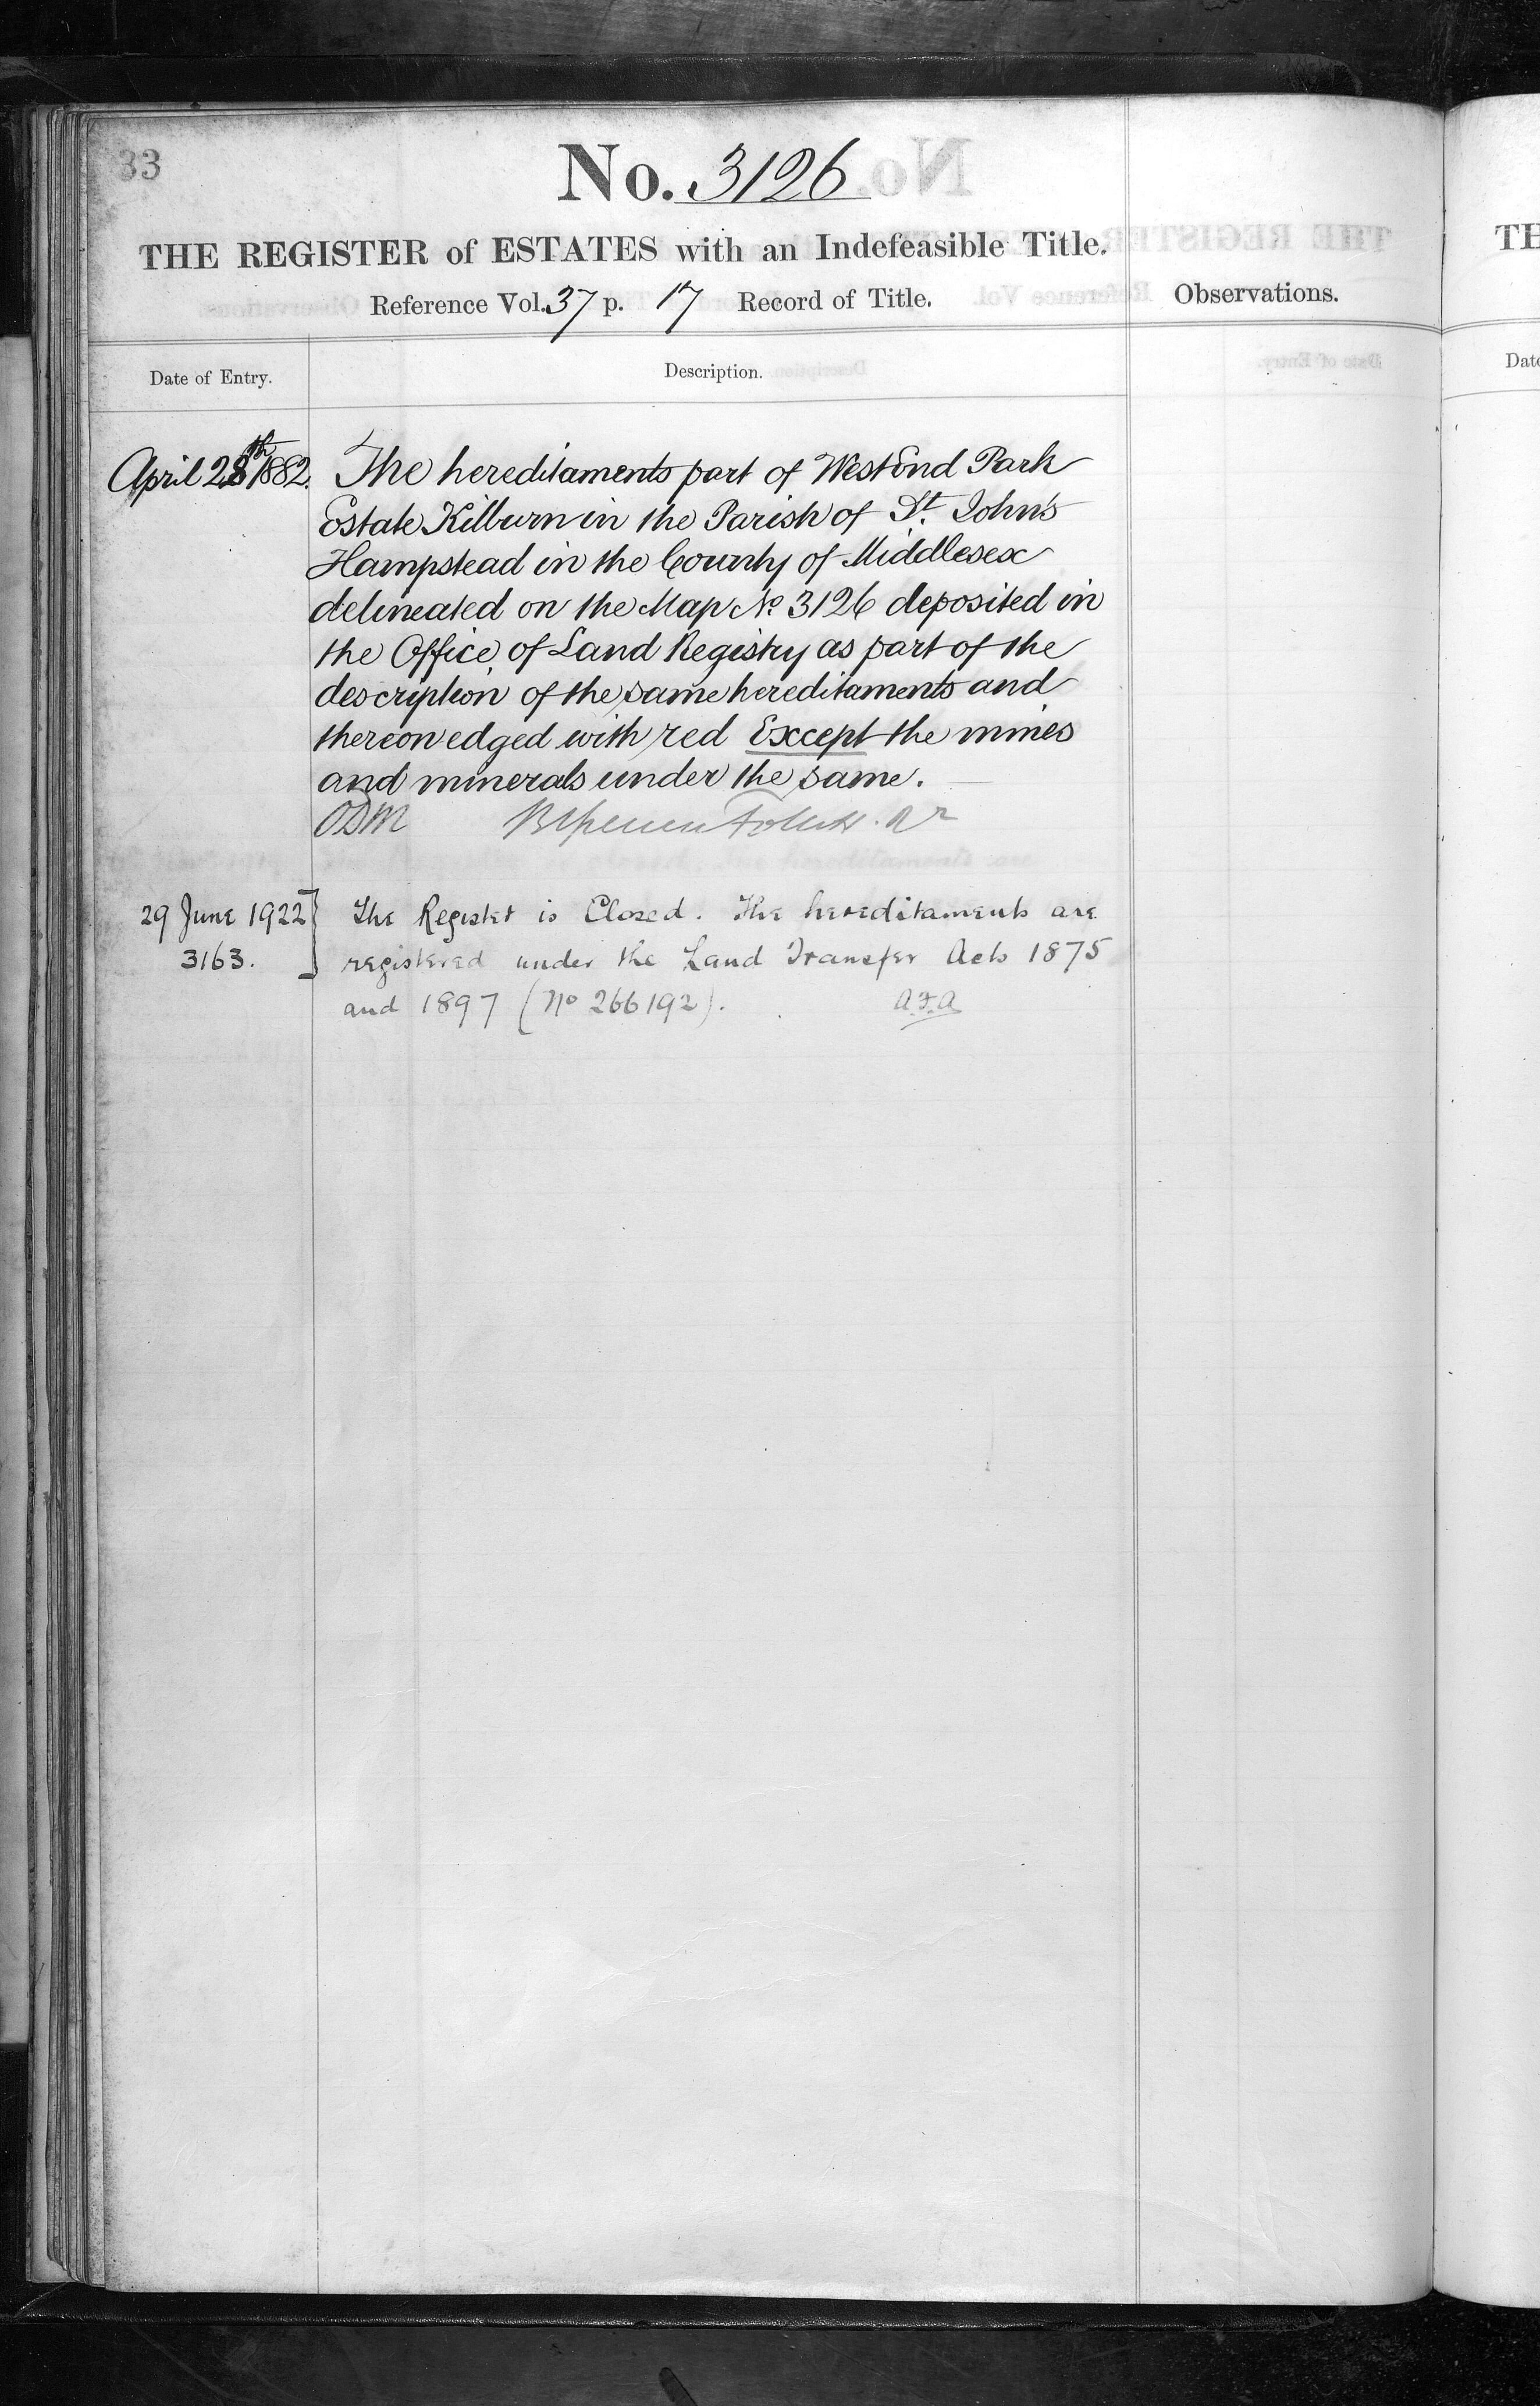 33
No. 3126
THE REGISTER of ESTATES with an Indefeasible Title.
Reference Vol. 37 p. 17 Record of Title.
Observations.
Date of Entry.
Description.
April 28th 1882. The hereditaments part of West End Park
Estate Kilburn in the Parish of St. John's
Hampstead in the County of Middlesex
delineated on the Map No 3126 deposited in
the Office of Land Registry as part of the
description of the same hereditaments and
thereon edged with red Except the mines
and minerals under the same.
29 June 1922 The Register is Closed. The hereditaments are
3163. registered under the Land Transfer Acts 1875
and 1897 (No 266192). A.F.A
TH
Date